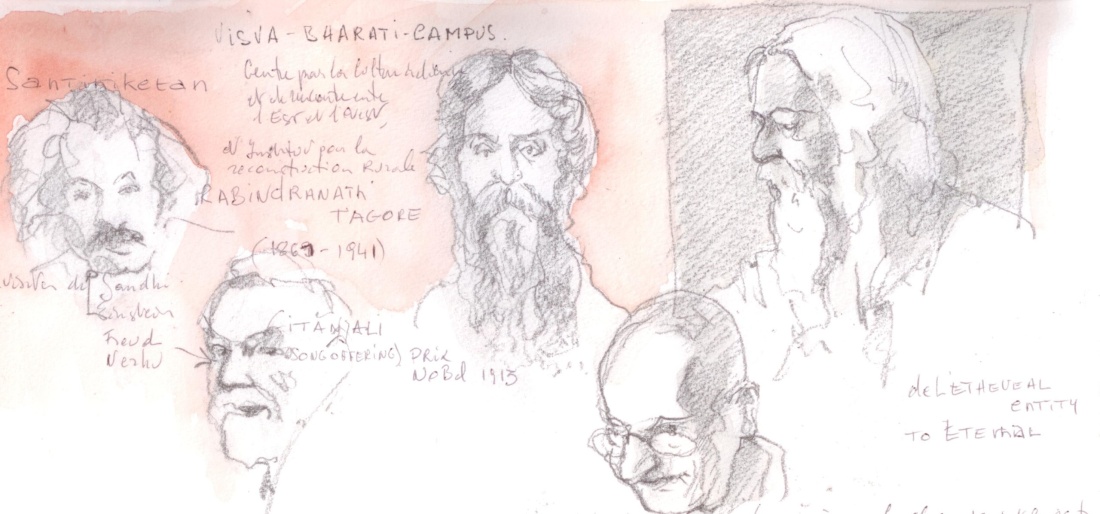 VISVA-BHARATI-CAMPUS.
Santiniketan
Centre pour la Culture indienne
et de
l'Est et l'Ouest,
et Institut pour la
reconstruction Rurale
RABINDRANATH
TAGORE
(1869-1941)
visites de Gandhi
Einstein
Freud
Nerhu
GITANJALI
(SONG OFFERING) PRIX
NOBEL 1913
de L'ETHEVEAL
ENTITY
TO ETERNAL